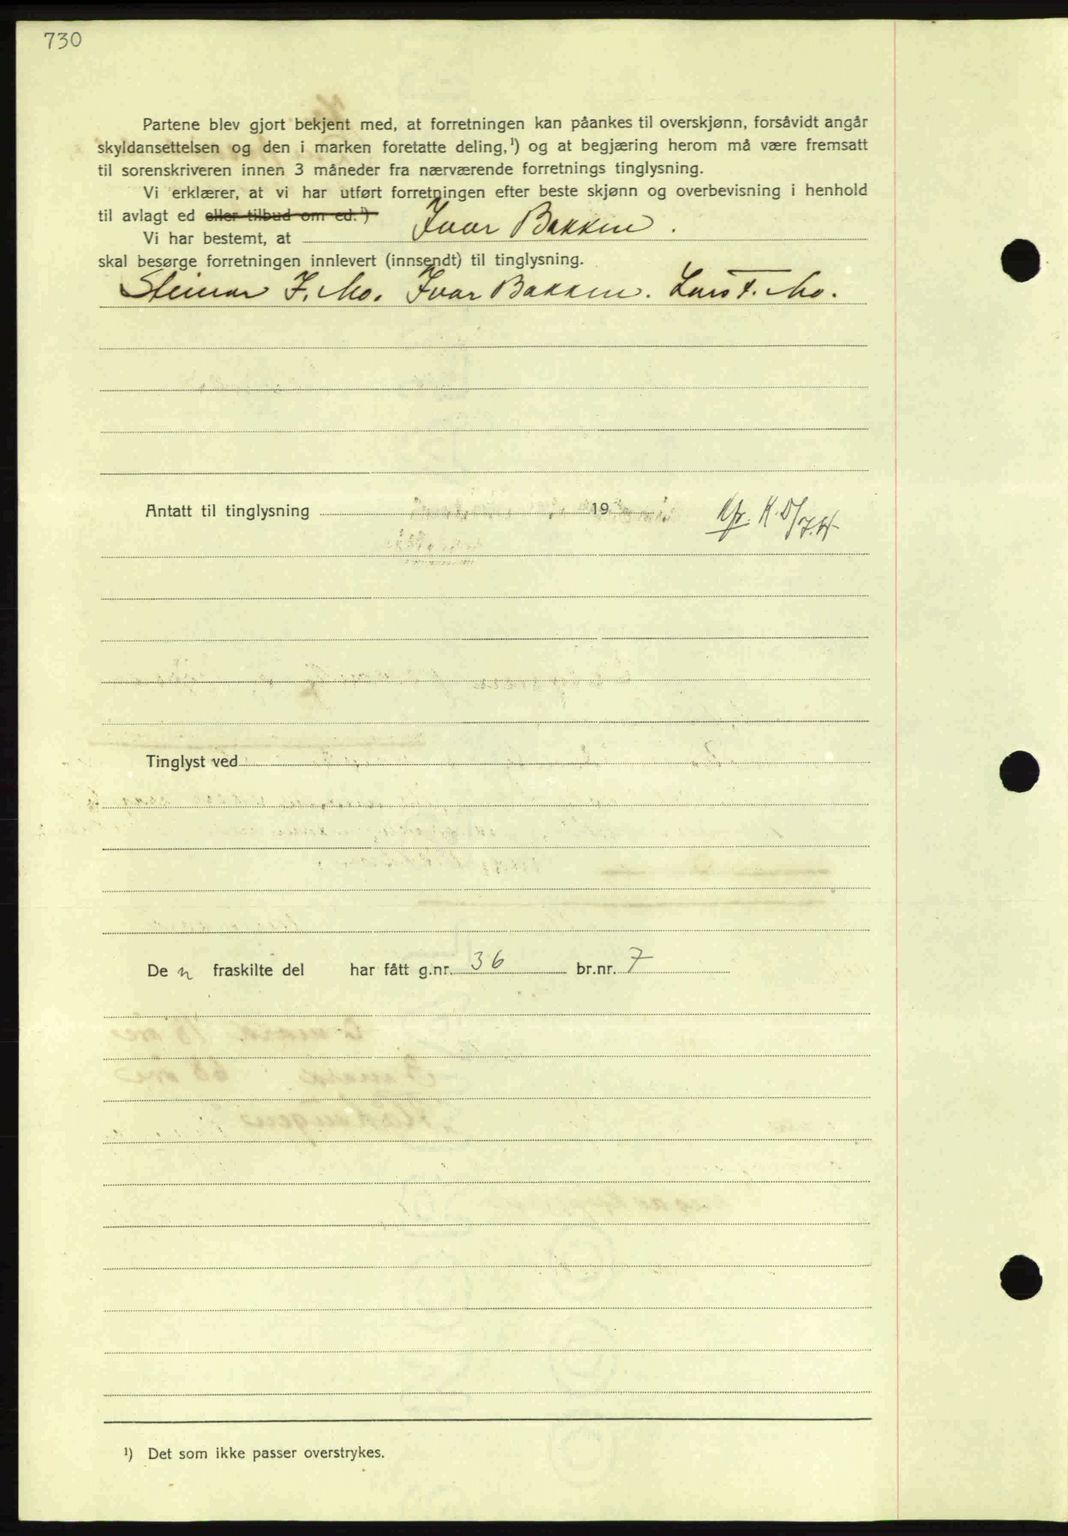 730
Partene blev gjort bekjent med, at forretningen kan påankes til overskjønn, forsåvidt angår
skyldansettelsen og den i marken foretatte deling,¹) og at begjæring herom må være fremsatt
til sorenskriveren innen 3 måneder fra nærværende forretnings tinglysning.
Vi erklærer, at vi har utført forretningen efter beste skjønn og overbevisning i henhold
til avlagt ed eller tilbud om ed.¹)
Vi har bestemt, at Ivar Bakken.
skal besørge forretningen innlevert (innsendt) til tinglysning.
Steinar I. Mo. Ivar Bakken. Lars T. Mo.
Antatt til tinglysning 19
Tinglyst ved
De n fraskilte del har fått g.nr. 36 br.nr. 7
¹) Det som ikke passer overstrykes.